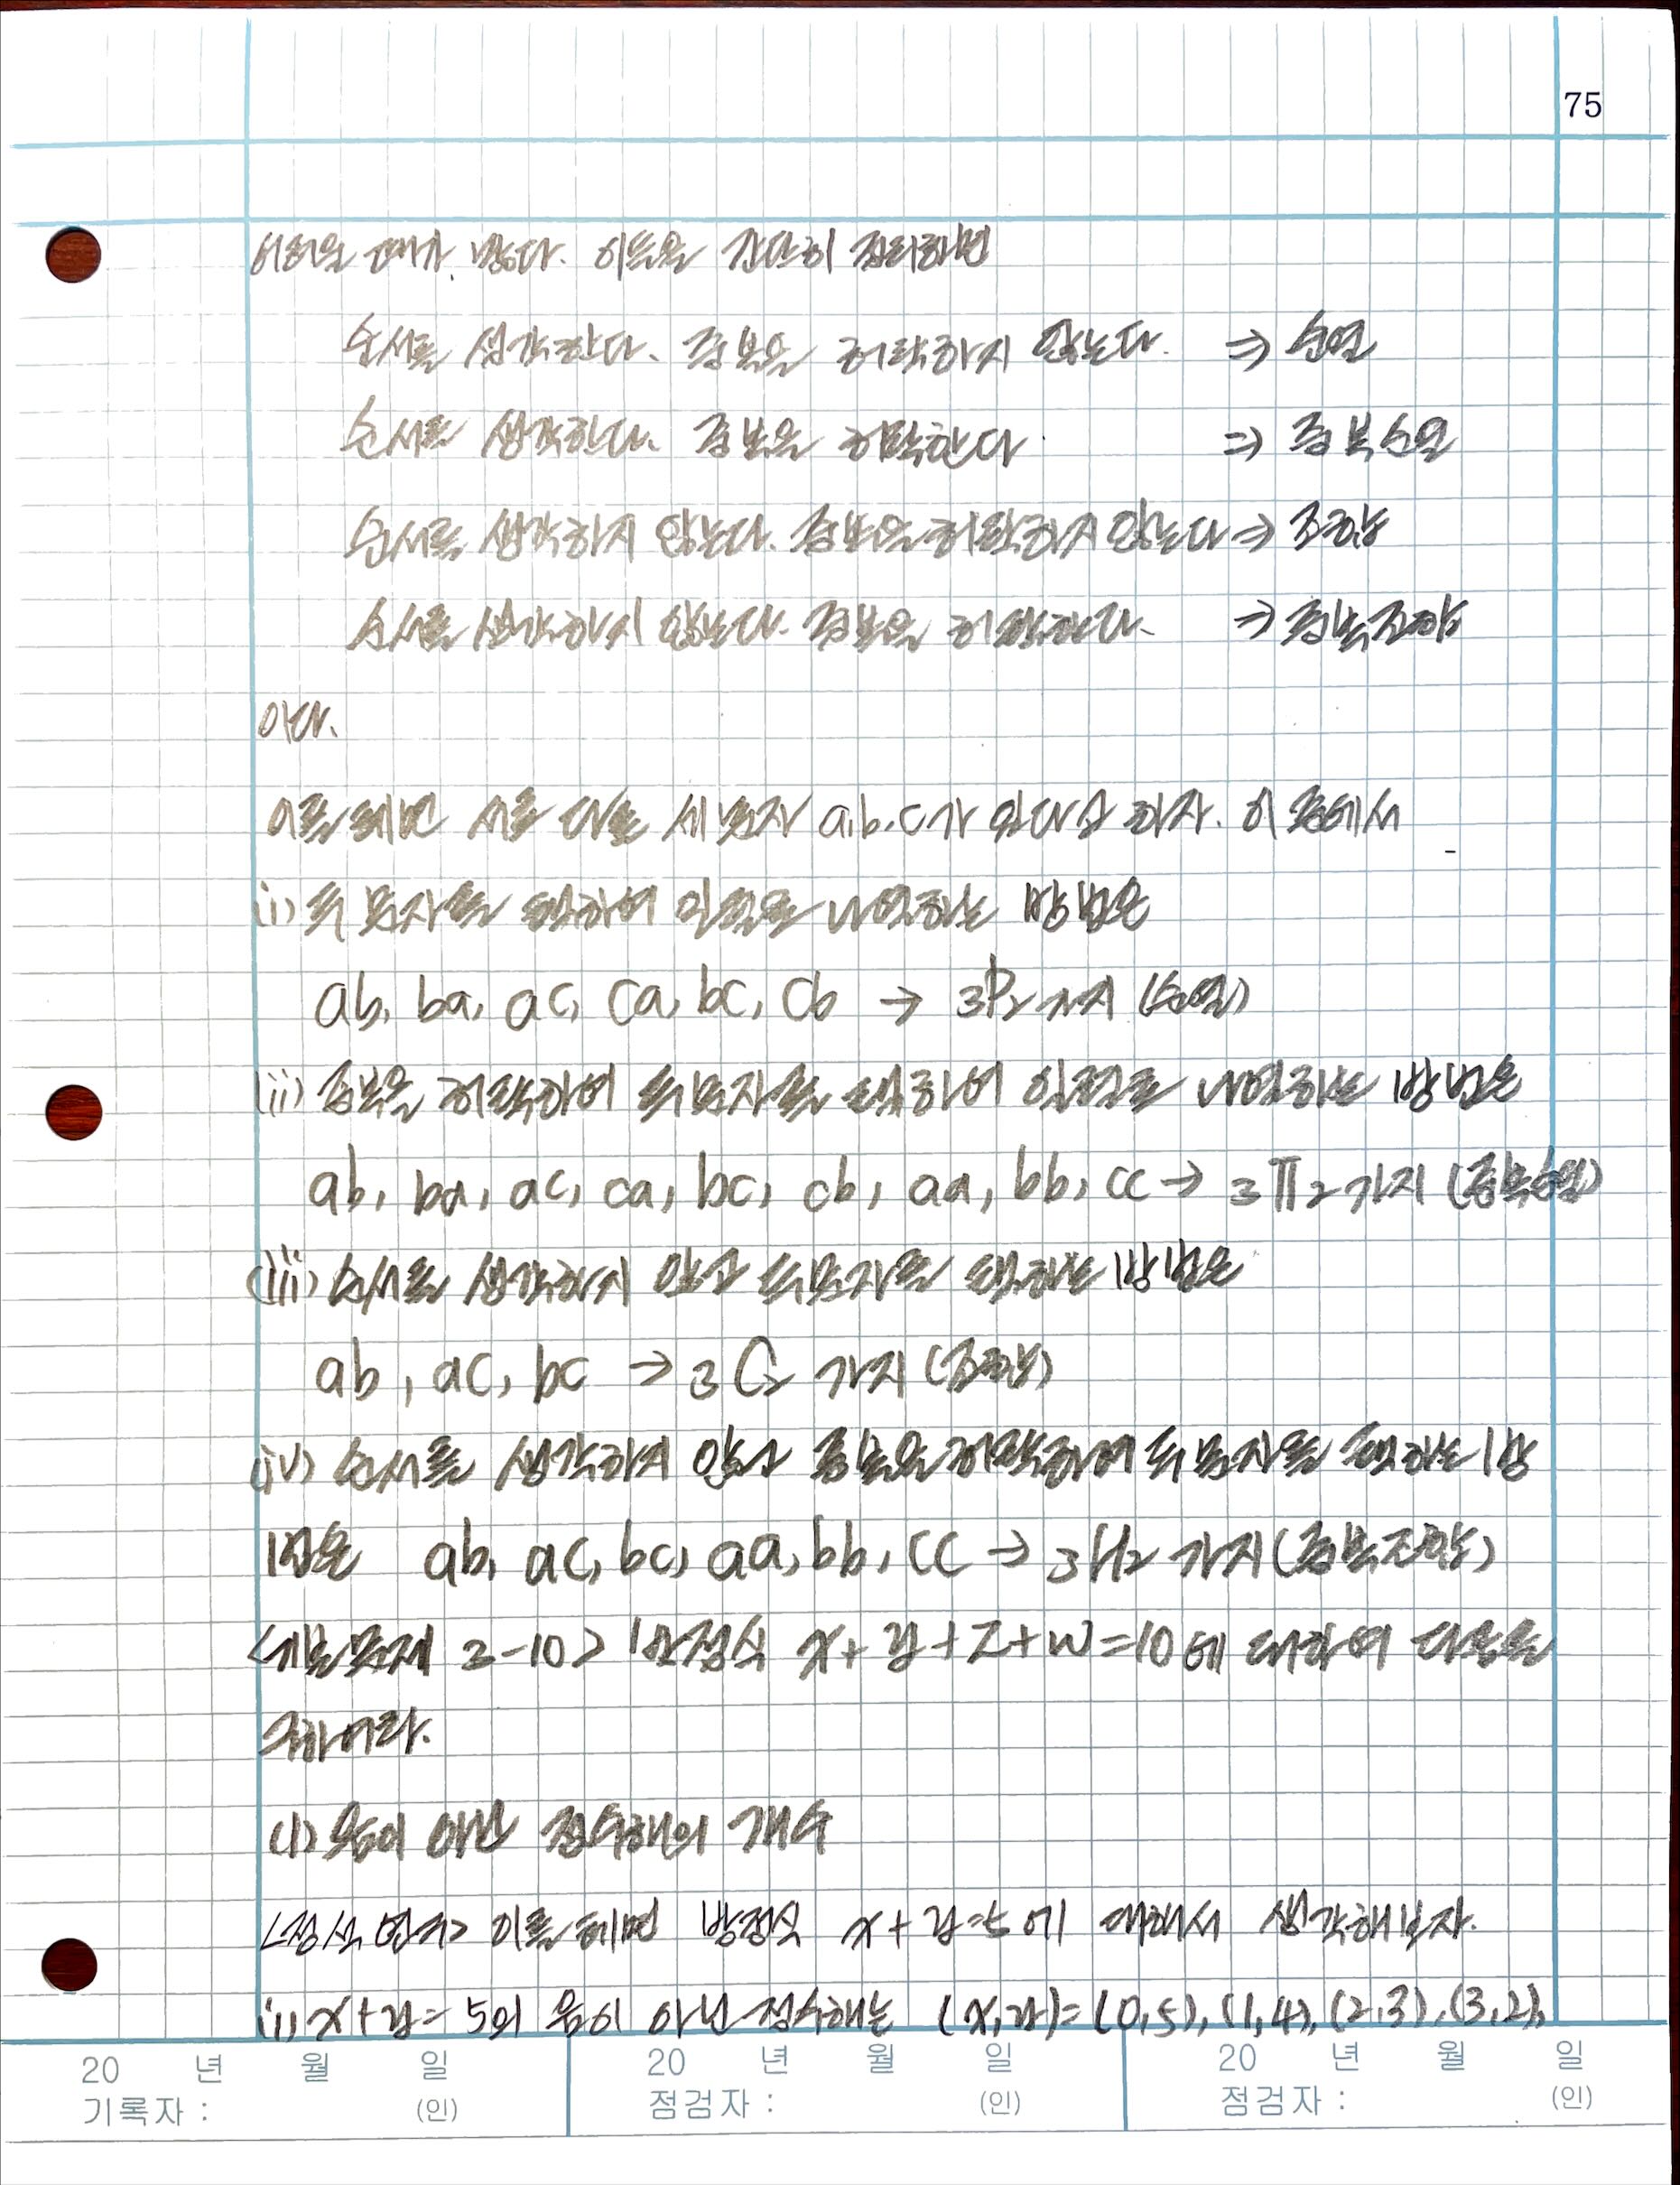 75
어려울 때가 많다. 이들을 간단히 정리하면
순서를 생각한다. 중복을 허락하지 않는다. ⇒ 순열
순서를 생각한다. 중복을 허락한다 ⇒ 중복순열
순서를 생각하지 않는다. 중복을 허락하지 않는다 ⇒ 조합
순서를 생각하지 않는다. 중복을 허락한다. ⇒ 중복조합
이다.
이를테면 서로 다른 세 문자 a, b, c가 있다고 하자. 이 중에서
(i) 두 문자를 택하여 일렬로 나열하는 방법은
ab, ba, ac, ca, bc, cb → ₃P₂가지 (순열)
(ii) 중복을 허락하여 두 문자를 택하여 일렬로 나열하는 방법은
ab, ba, ac, ca, bc, cb, aa, bb, cc → ₃Π₂가지 (중복순열)
(iii) 순서를 생각하지 않고 두 문자를 택하는 방법은
ab, ac, bc → ₃C₂ 가지 (조합)
(iv) 순서를 생각하지 않고 중복을 허락하여 두 문자를 택하는 방
법은 ab, ac, bc, aa, bb, cc → ₃H₂ 가지 (중복조합)
<기본문제 3-10> 방정식 x+y+z+w=10에 대하여 다음을
구하여라.
(1) 음이 아닌 정수해의 개수
<정석연구> 이를테면 방정식 x+y=5에 대해서 생각해보자.
(i) x+y=5의 음이 아닌 정수해는 (x,y)=(0,5), (1,4), (2,3), (3,2),
20 년 월 일 20 년 월 일 20 년 월 일
기록자 : (인) 점검자 : (인) 점검자 : (인)